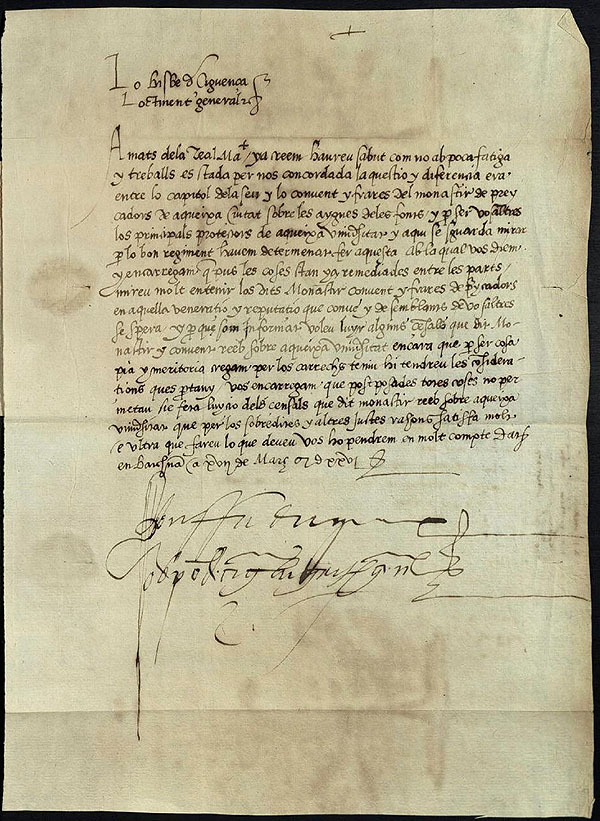 Lo bisbe d Ciguença
Loctinent general
Amats dela Real Mat ya creem haureu sabut com no ab poca fatiga
y treballs es stada per nos concordada la questio y diferencia era
entre lo capitol dela seu y lo convent y frares del monastir de prey
cadors de aqueixa ciutat sobre les aygues deles fonts y p ser vosaltres
los principals protectors de aqueixa universitat y aqui se sguarda mirar
p lo bon regiment havem determenat fer aquesta ab la qual vos diem
y encarregam q pus les coses stan ya remediades entre les parts
mireu molt en tenir los dits Monastir convent y frares de p̃ycadors
en aquella veneratio y reputatio que conve y de semblants de vosaltres
se spera y p que som informats voleu luyr algũs censals que dit Mo
nastir y convent reeb sobre aqueixa universitat encara que p ser cosa
pia y meritoria cregam per los carrechs teniu hi tendreu les cõsidera
tions ques ptany vos encarregam que postposades totes coses no per
metau sie feta luycio dels censals que dit monastir reeb sobre aqueixa
universitat que per los sobredites y altres justes rahons satisfa molt
e ultra que fareu lo que deveu vos ho pendrem en molt compte Dat
en Barcna a xvii de Març d xxvi